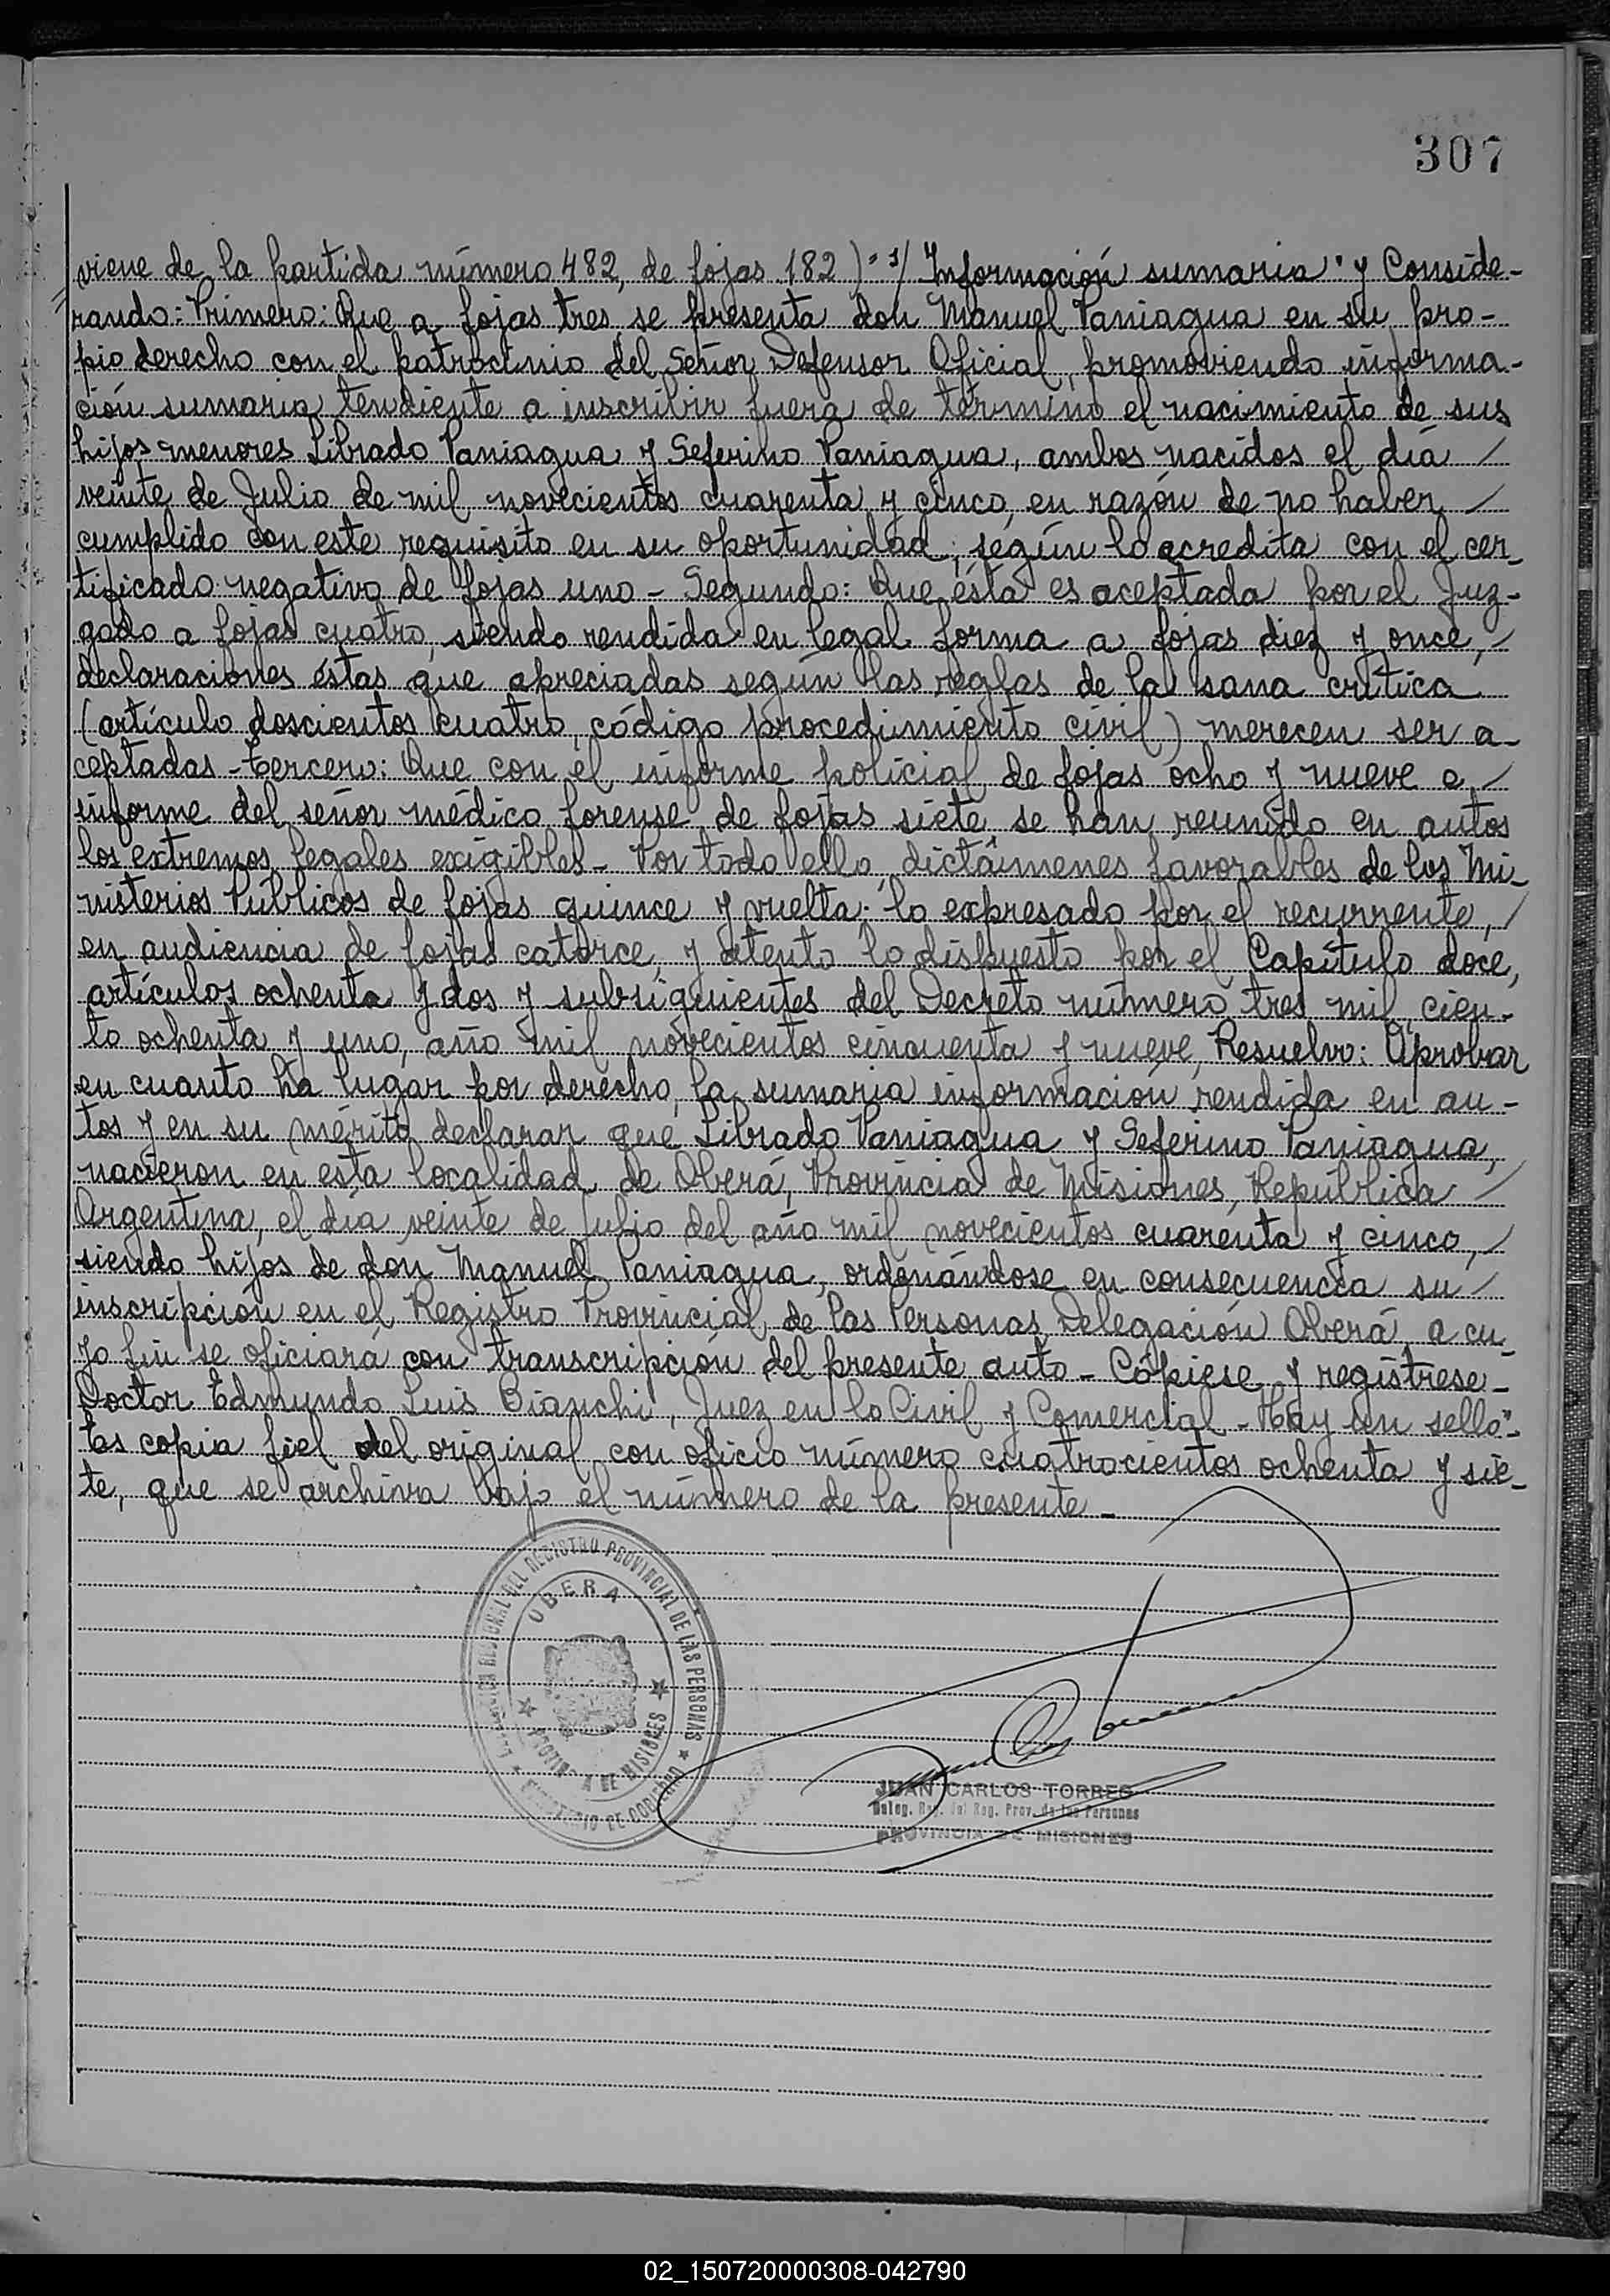 307
viene de la partida número 482, de fojas 182) "s/ Información sumaria" y Conside-
rando: Primero: Que a fojas tres, se presenta don Manuel Paniagua en su pro-
pio derecho con el patrocinio del Señor Defensor Oficial, promoviendo informa-
ción sumaria tendiente a inscribir fuera de término el nacimiento de sus
hijos menores Librado Paniagua y Seferino Paniagua, ambos nacidos el día
veinte de Julio de mil novecientos cuarenta y cinco, en razón de no haber
cumplido con este requisito en su oportunidad, según lo acredita con el cer-
tificado negativo de fojas uno - Segundo: Que ésta es aceptada por el Juz-
gado a fojas cuatro, siendo rendida en legal forma a fojas diez y once,
declaraciones éstas que apreciadas según las reglas de la sana crítica
(artículo doscientos cuatro, código procedimiento civil) merecen ser a-
ceptadas - Tercero: Que con el informe policial de fojas ocho y nueve e
informe del señor médico forense de fojas siete, se han reunido en autos
los extremos legales exigibles - Por todo ello, dictámenes favorables de los Mi-
nisterios Públicos de fojas quince y vuelta; lo expresado por el recurrente,
en audiencia de fojas catorce, y atento lo dispuesto por el Capítulo doce,
artículos ochenta y dos y subsiguientes del Decreto número tres mil cien-
to ochenta y uno, año mil novecientos cincuenta y nueve, Resuelvo: Aprobar
en cuanto ha lugar por derecho, la sumaria información rendida en au-
tos y en su mérito declarar que Librado Paniagua y Seferino Paniagua,
nacieron en esta localidad de Oberá, Provincia de Misiones, República
Argentina, el día veinte de julio del año mil novecientos cuarenta y cinco,
siendo hijos de don Manuel Paniagua, ordenándose en consecuencia su
inscripción en el Registro Provincial de las Personas, Delegación Oberá, a cu-
yo fin se oficiará con transcripción del presente auto - Cópiese y regístrese -
Doctor Edmundo Luis Bianchi, Juez en lo Civil y Comercial - Hay un sello" -
Es copia fiel del original con oficio número cuatrocientos ochenta y sie-
te, que se archiva bajo el número de la presente -
DEL REGISTRO PROVINCIAL DE LAS PERSONAS
OBERA
PROVINCIA DE MISIONES
MINISTERIO DE GOBIERNO
JUAN CARLOS TORRES
Deleg. Reg. del Reg. Prov. de las Personas
PROVINCIA DE MISIONES
02_150720000308-042790